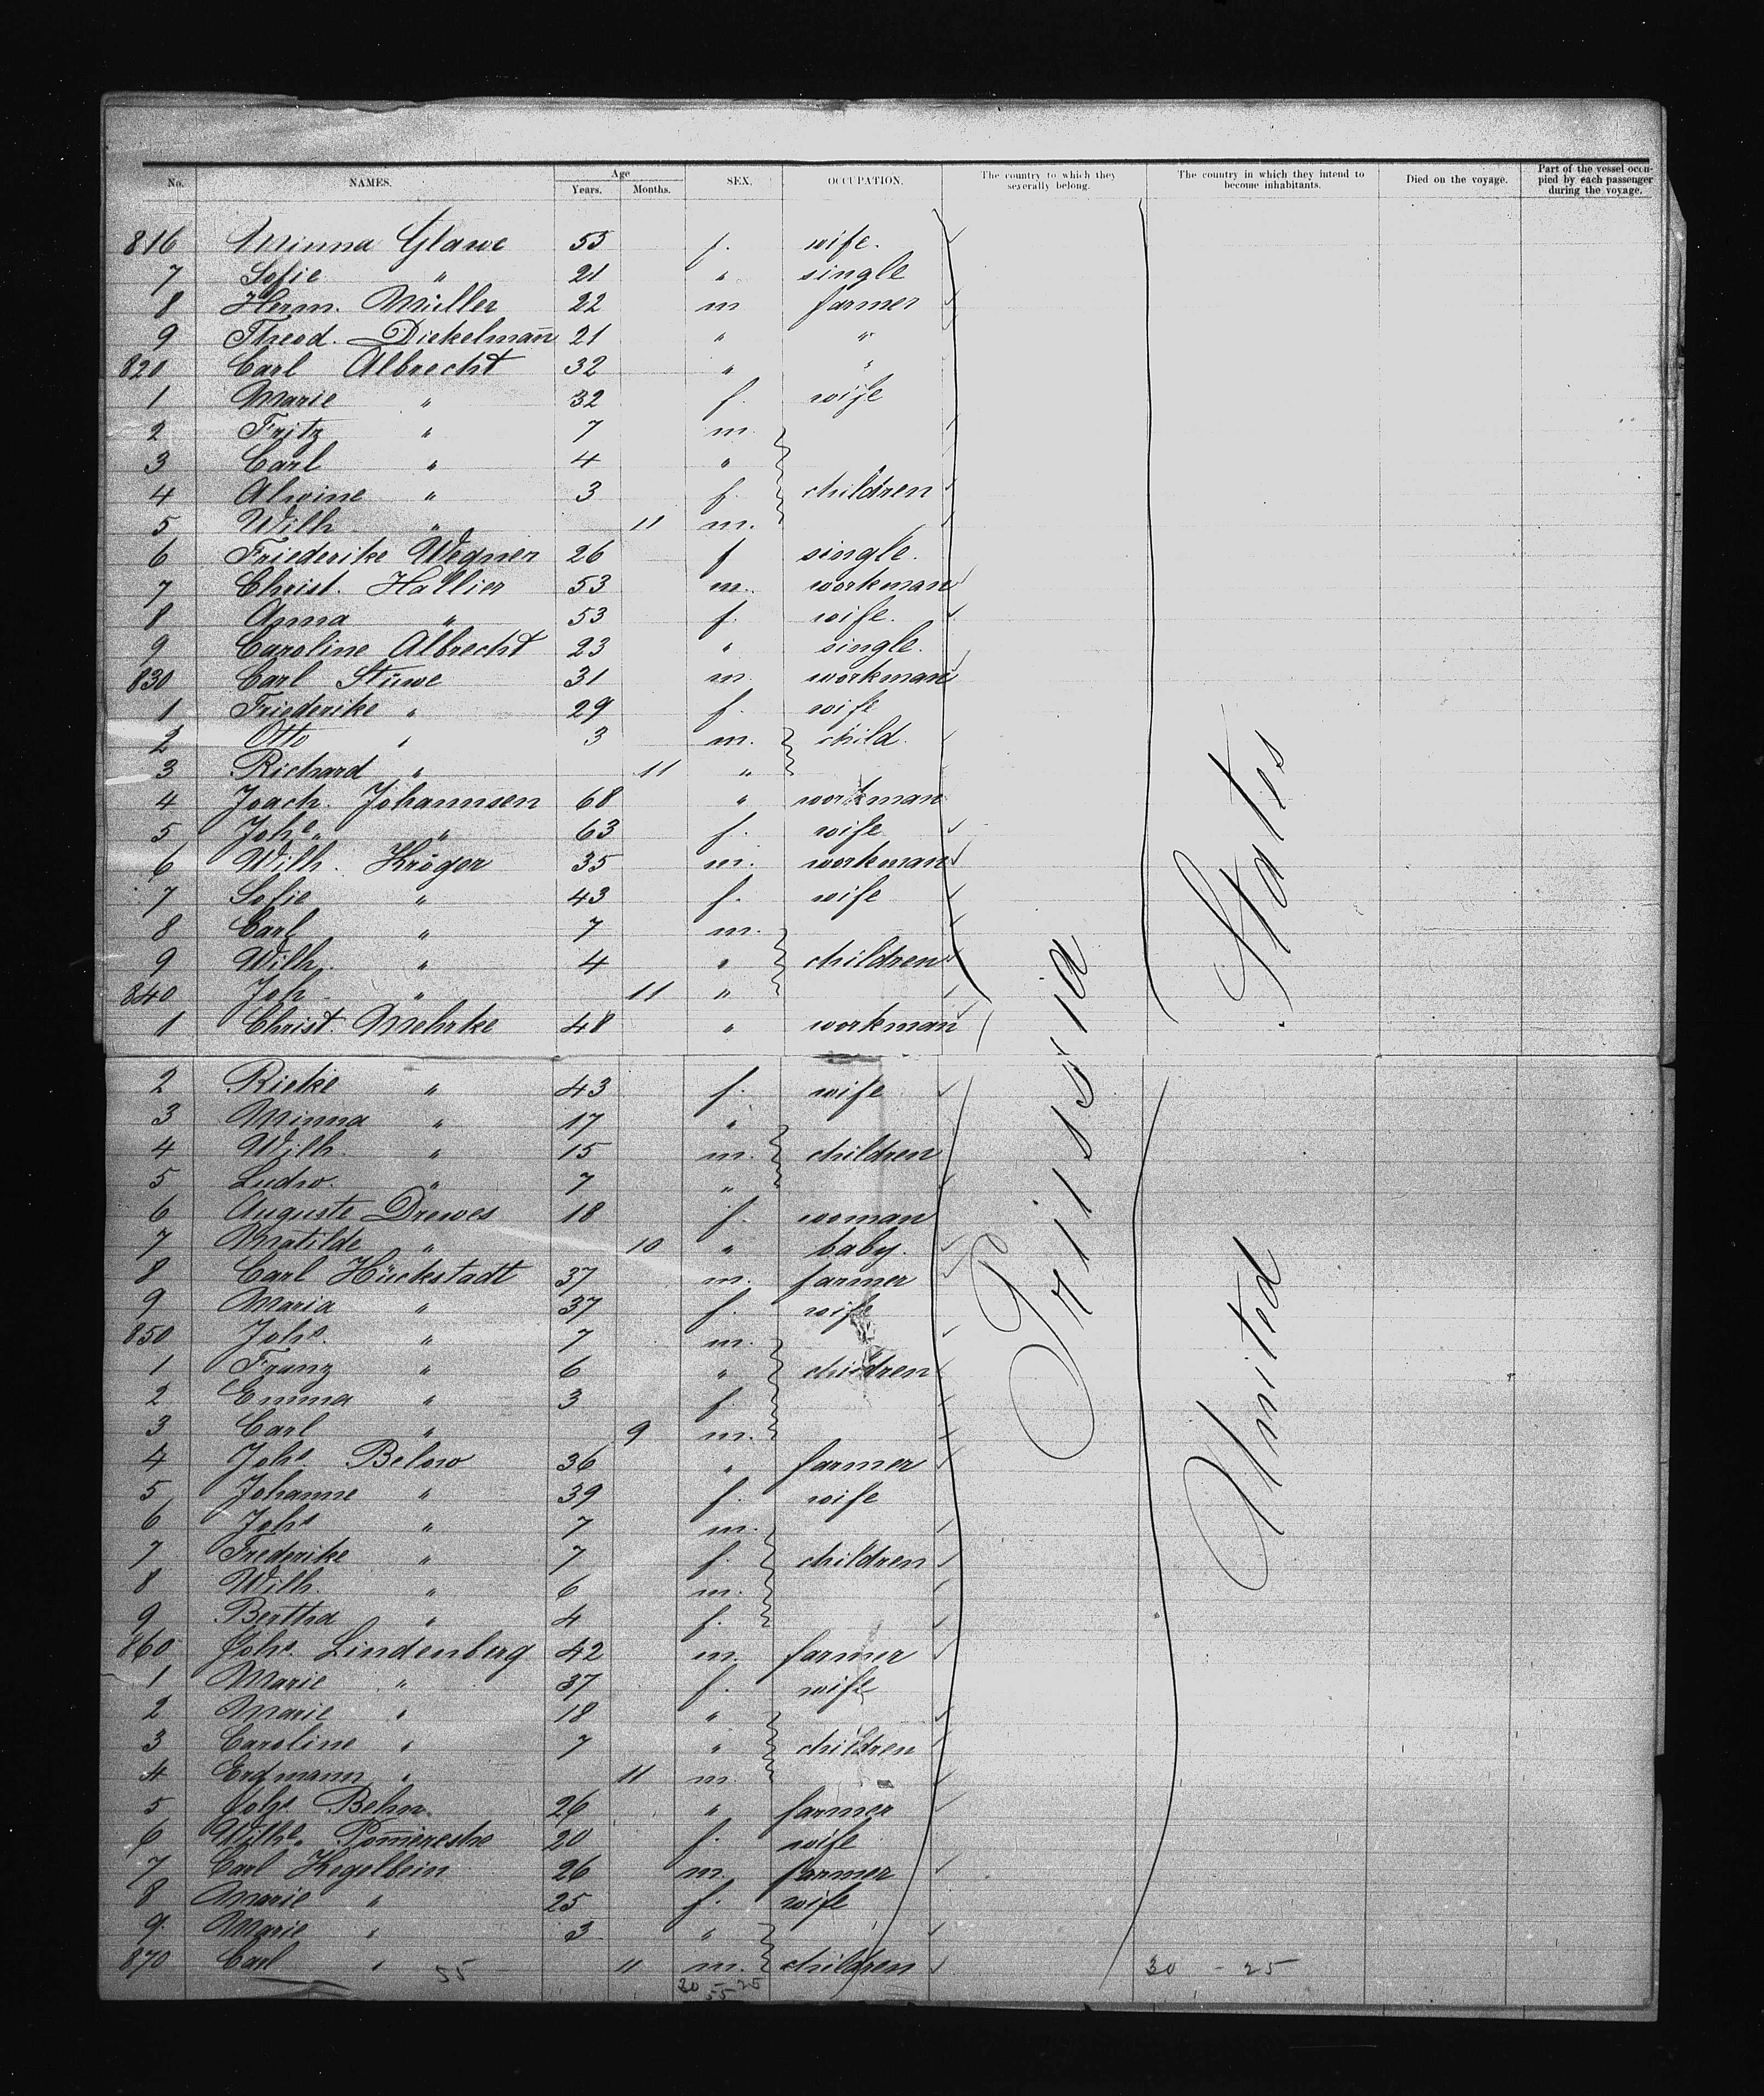 No. NAMES. Age Years. Months. SEX. OCCUPATION. The country to which they severally belong. The country in which they intend to become inhabitants. Died on the voyage. Part of the vessel occupied by each passenger during the voyage.
816 Minna Glawe 53 f. wife.
7 Sofie " 21 " single
8 Herm. Müller 22 m farmer
9 Theod. Dickelman̄ 21 " "
820 Carl Albrecht 32 " "
1 Marie " 32 f. wife
2 Fritz " 7 m.
3 Carl " 4 "
4 Alwine " 3 f. children
5 Wilh. " 11 m.
6 Friederike Wegner 26 f single.
7 Christ. Hallier 53 m. workman
8 Anna " 53 f. wife.
9 Caroline Albrecht 23 " single.
830 Carl Stüwe 31 m. workman
1 Friederike " 29 f. wife
2 Otto " 3 m. child.
3 Richard " 11 "
4 Joach. Johannsen 68 " workman
5 Johe. " 63 f. wife
6 Wilh. Kröger 35 m. workman
7 Sofie " 43 f. wife
8 Carl " 7 m.
9 Wilh. " 4 " children
840 Joh. " 11 "
1 Christ Mehrke 48 " workman
2 Rieke " 43 f. wife
3 Minna " 17 "
4 Wilh. " 15 m. children
5 Ludw. " 7 "
6 Auguste Drewes 18 f. woman
7 Matilde " 10 " baby.
8 Carl Hückstadt 37 m. farmer
9 Maria " 37 f wife
850 Johs. " 7 m.
1 Franz " 6 " children
2 Emma " 3 f.
3 Carl " 9 m.
4 Johs. Below 36 " farmer
5 Johanne " 39 f. wife
6 Johs " 7 m.
7 Frederike " 7 f. children
8 Wilh. " 6 m.
9 Bertha " 4 f.
860 Johs. Lindenberg 42 m. farmer
1 Marie " 37 f. wife
2 Marie " 18 "
3 Caroline " 7 " children
4 Erdmann " 11 m.
5 Johs Behn 26 " farmer
6 Wilhe. 20 f. wife
7 Carl Kegelbein 26 m. farmer
8 Marie " 25 f. wife
9 Marie " 3 "
870 Carl " 11 m. children
55 30 - 25 30 - 25
55
Prussia
United States